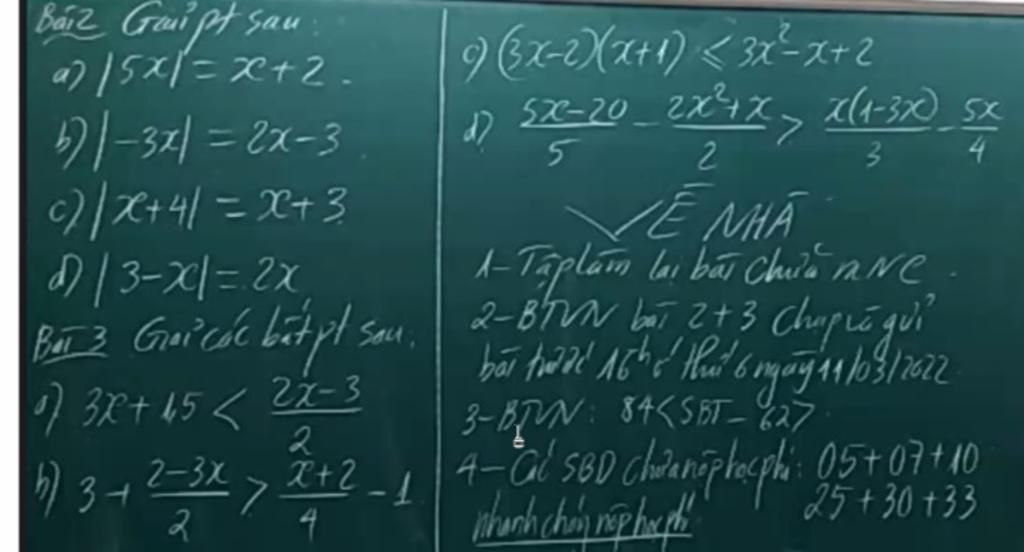 Bài 2 Giải pt sau:
a) |5x| = x+2.
b) |-3x| = 2x-3
c) |x+4| = x+3
d) |3-x| = 2x
Bài 3 Giải các bất pt sau:
a) 3x+1,5 < \frac{2x-3}{2}
b) 3 + \frac{2-3x}{2} > \frac{x+2}{4} - 1
c) (3x-2)(x+1) ≤ 3x²-x+2
d) \frac{5x-20}{5} - \frac{2x²+x}{2} > \frac{x(1-3x)}{3} - \frac{5x}{4}
VỀ NHÀ
1- Tập làm lại bài chữa
2- BTVN bài 2+3 chụp và gửi
bài trước 15h thứ 6 ngày 11/03/2022
3- BTVN: 84<SBT-62>
4- Các SBD chưa nộp học phí: 05+07+10
25+30+33
nhanh chóng nộp học phí